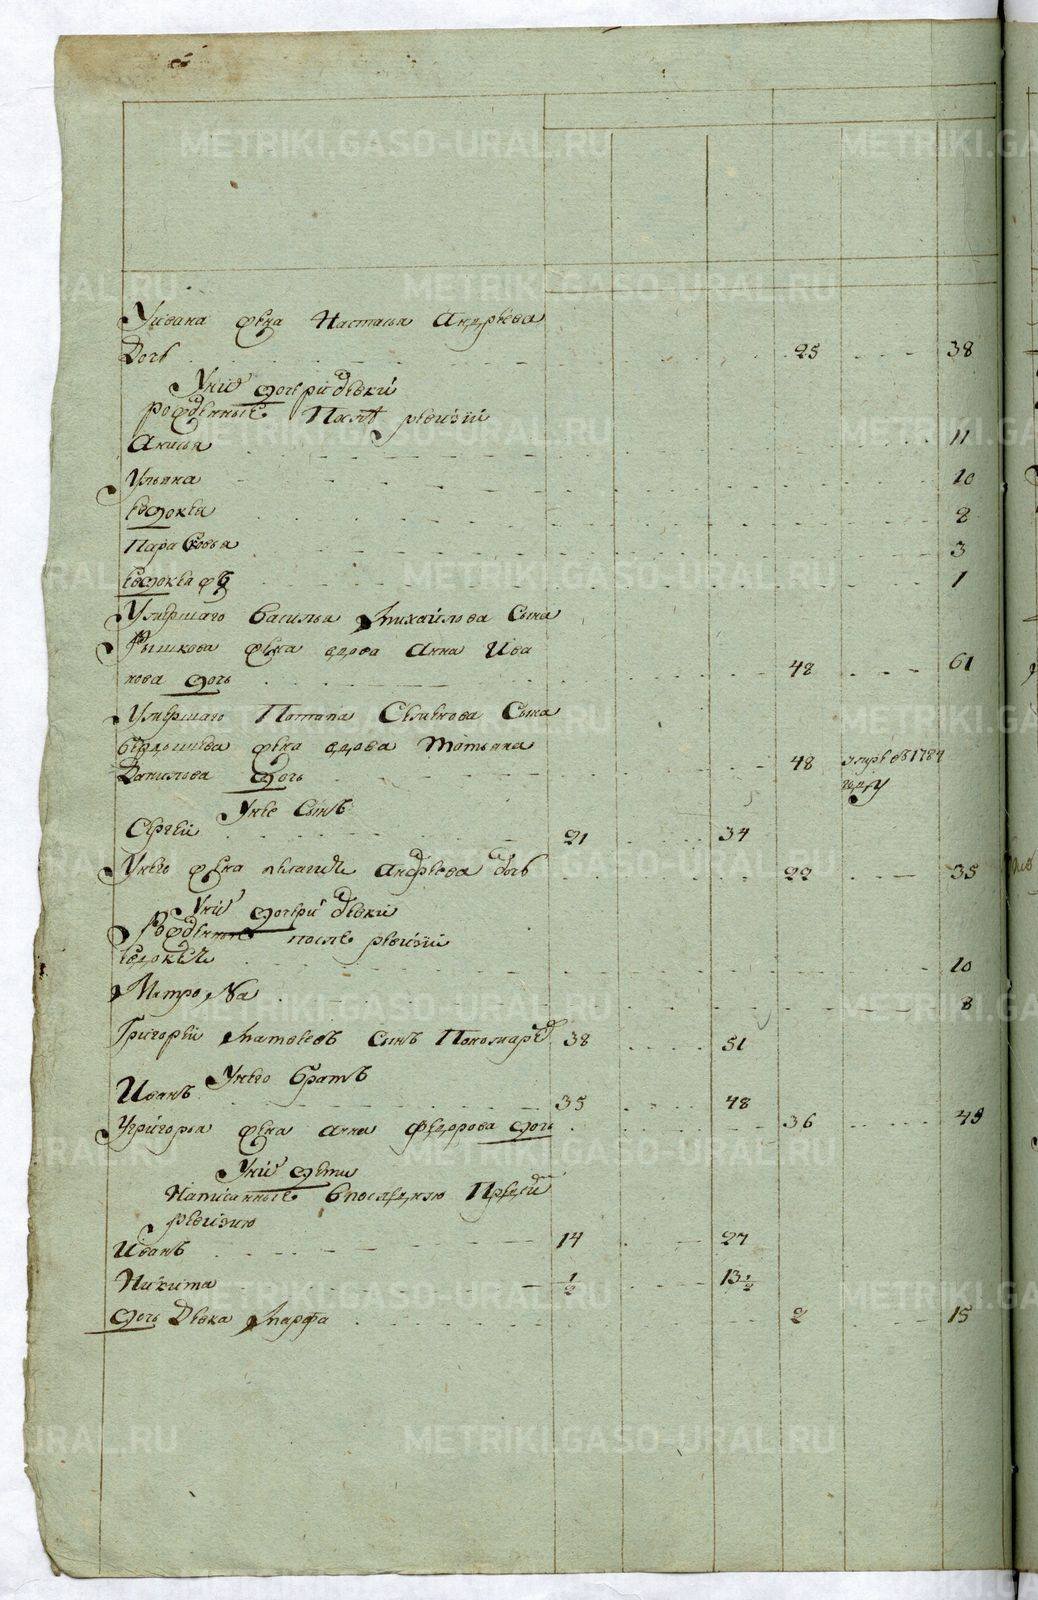 Уивана жена Настасья Андреева
Дочь 25 38
Унихъ дочери девки
рожденные После ревизiи
Анисья 11
Ульяна 10
Евдокея 8
Парасковья 3
Евдокея жъ 1
Умершаго Василья Михайлова Сына
Рышкова жена вдова Анна Ива
нова дочь 48 61
Умершаго Потапа Селивнова Сына
жена вдова Татьяна
Данилова дочь 48 умре в 1784
году
Унее Сынъ
Сергей 21 34
Унего жена пелагия Андреева дочь 22 35
Унихъ дочери девки
Рожденные после ревизiи
Евдокея 10
Матрона 8
Григорей Матвеевъ сынъ Пономаревъ 38 51
Унего братъ
Иванъ 35 48
Угригорья жена анна федорова дочь 36 49
Унихъ дети
Написанные впоследнюю Предъ сей
ревизию
Иванъ 14 27
Никита 1/2 13 1/2
дочь Девка Марфа 2 15
METRIKI.GASO-URAL.RU